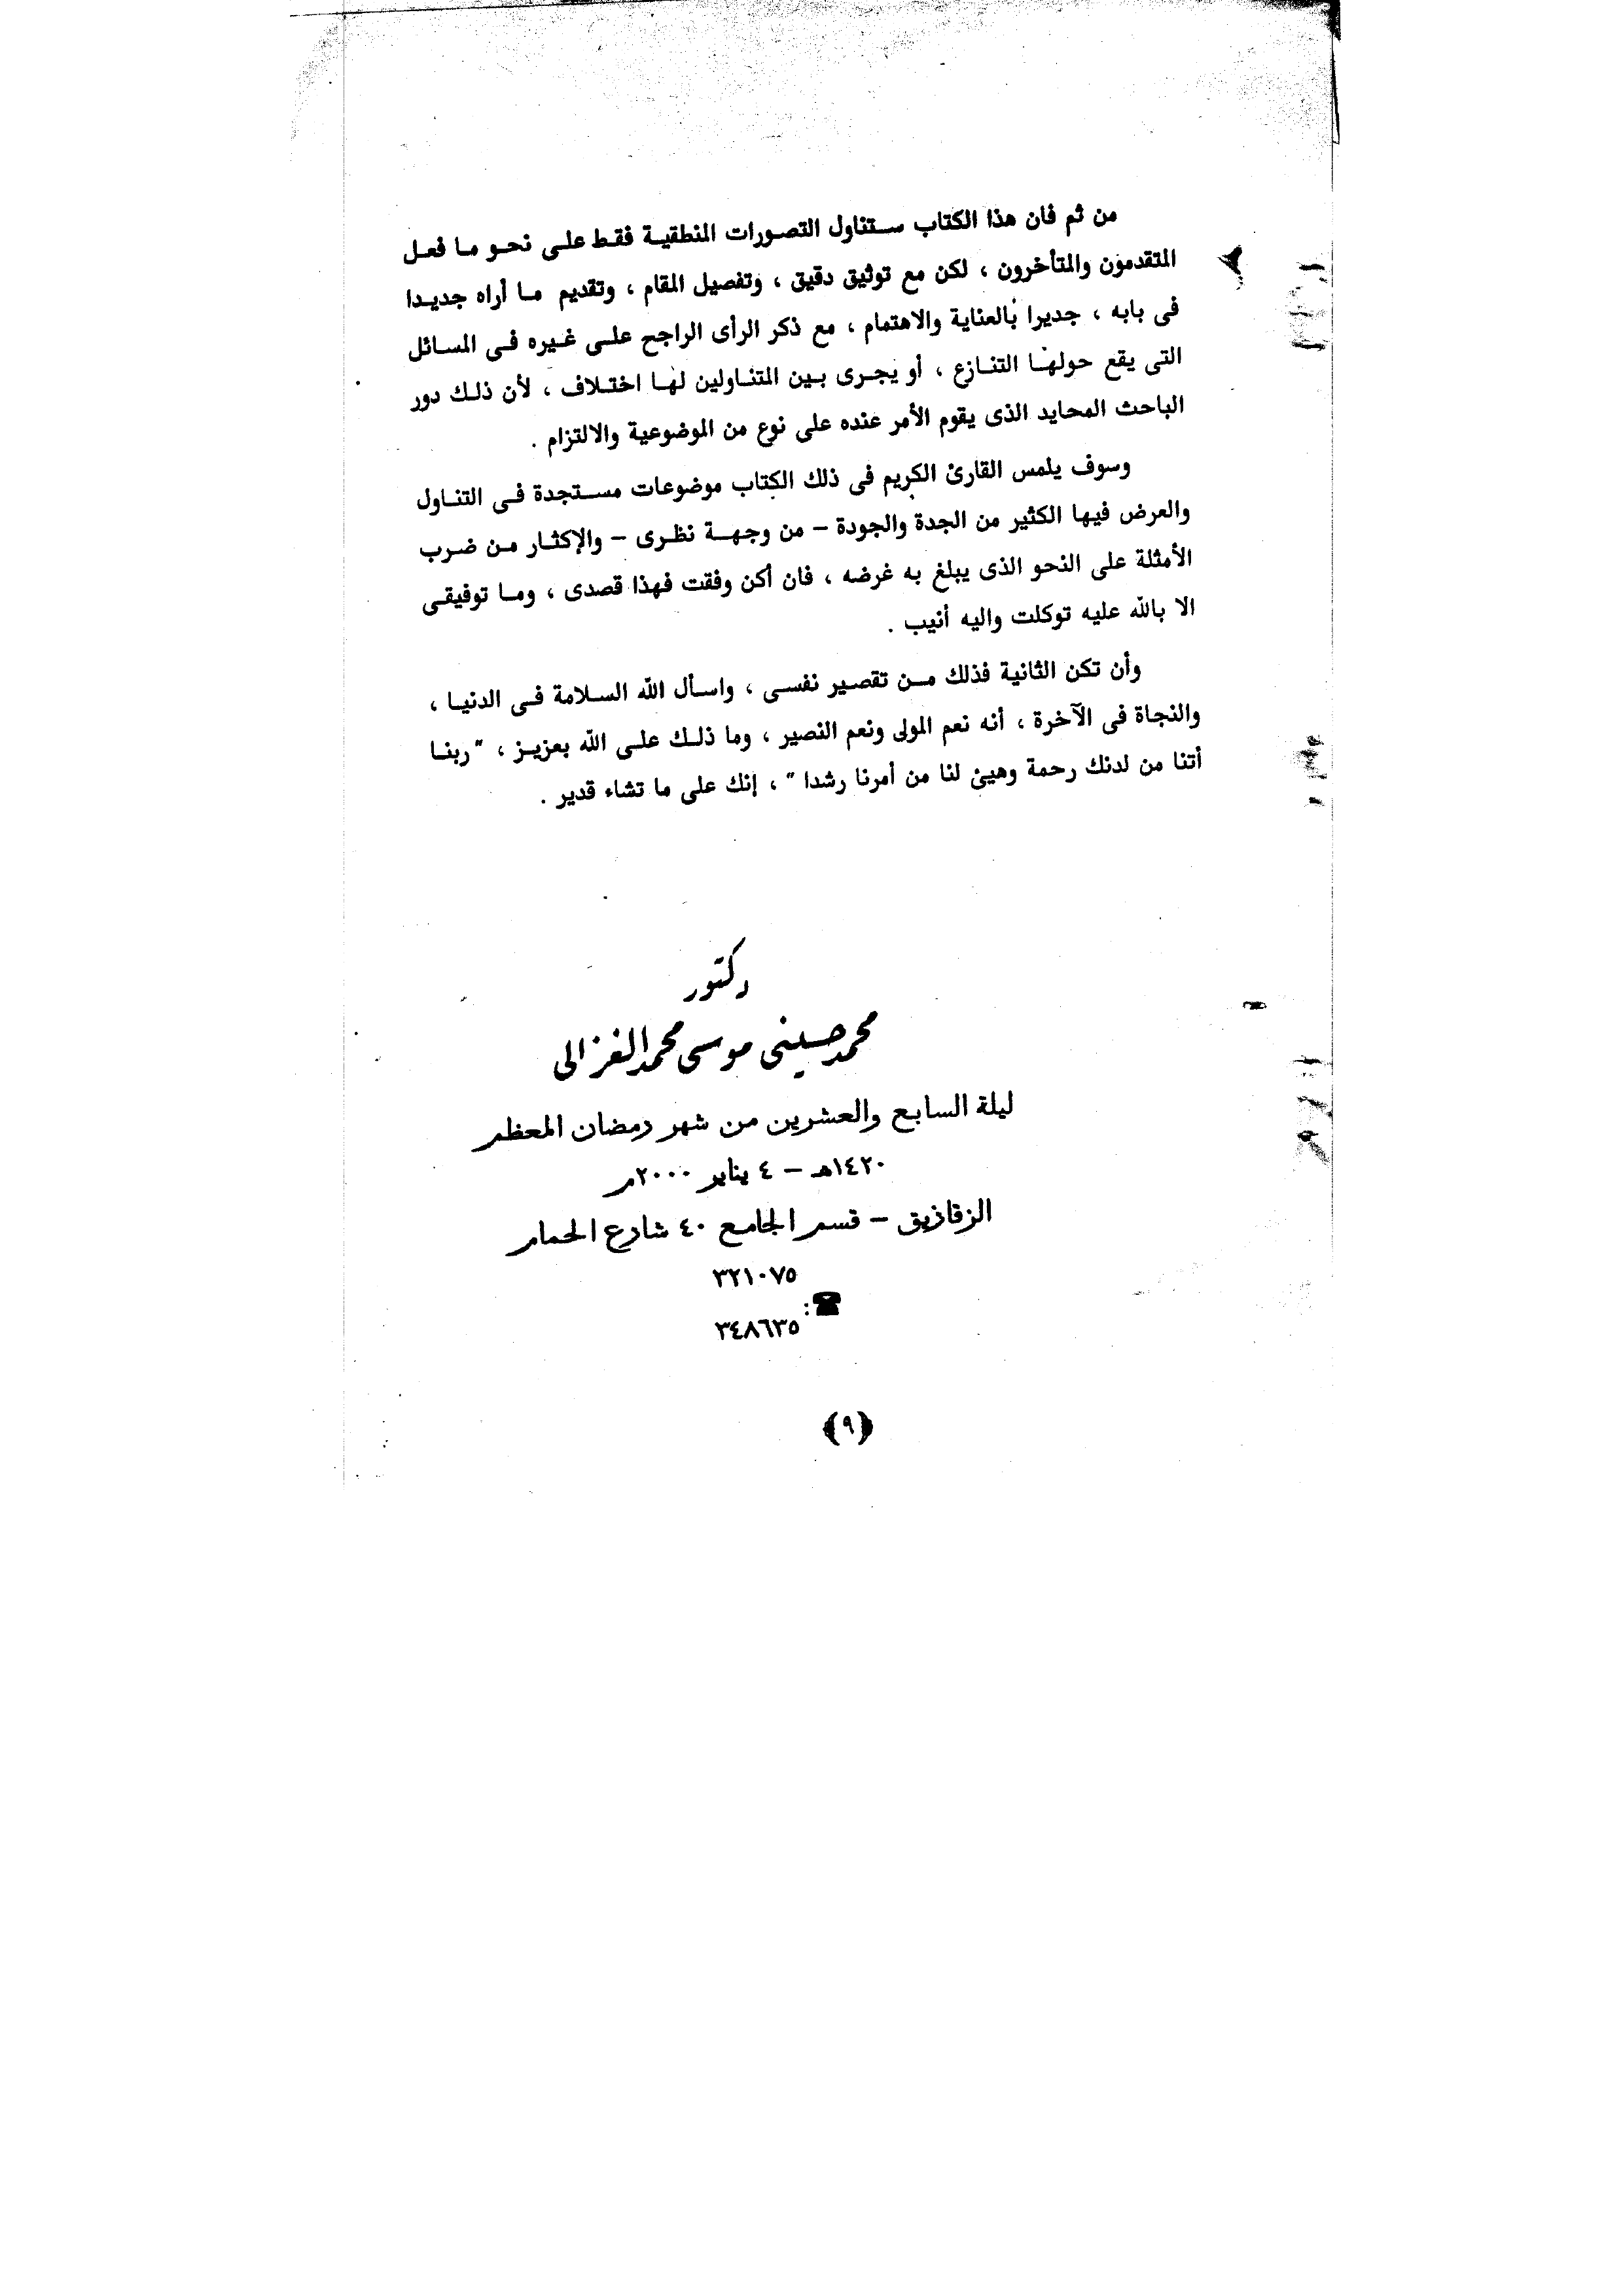 من ثم فان هذا الكتاب ستناول التصورات المنطقية فقط على نحو ما فعل
المتقدمون والمتأخرون ، لكن مع توثيق دقيق ، وتفصيل المقام ، وتقديم ما أراه جديدا
فى بابه ، جديرا بالعناية والاهتمام ، مع ذكر الرأى الراجح على غيره فى المسائل
التى يقع حولها التنازع ، أو يجرى بين المتناولين لها اختلاف ، لأن ذلك دور
الباحث المحايد الذى يقوم الأمر عنده على نوع من الموضوعية والالتزام .
وسوف يلمس القارئ الكريم فى ذلك الكتاب موضوعات مستجدة فى التناول
والعرض فيها الكثير من الجدة والجودة – من وجهة نظرى – والإكثار من ضرب
الأمثلة على النحو الذى يبلغ به غرضه ، فان أكن وفقت فهذا قصدى ، وما توفيقى
الا بالله عليه توكلت واليه أنيب .
وأن تكن الثانية فذلك من تقصير نفسى ، واسأل الله السلامة فى الدنيا ،
والنجاة فى الآخرة ، أنه نعم المولى ونعم النصير ، وما ذلك على الله بعزيز ، " ربنا
أتنا من لدنك رحمة وهيئ لنا من أمرنا رشدا " ، إنك على ما تشاء قدير .
دكتور
محمد حسينى موسى محمد الغزالى
ليلة السابع والعشرين من شهر رمضان المعظم
١٤٢٠هـ – ٤ يناير ٢٠٠٠م
الزقازيق – قسم الجامع ٤٠ شارع الحمام
٣٢١٠٧٥
☎ :
٣٤٨٦٣٥
﴿٩﴾